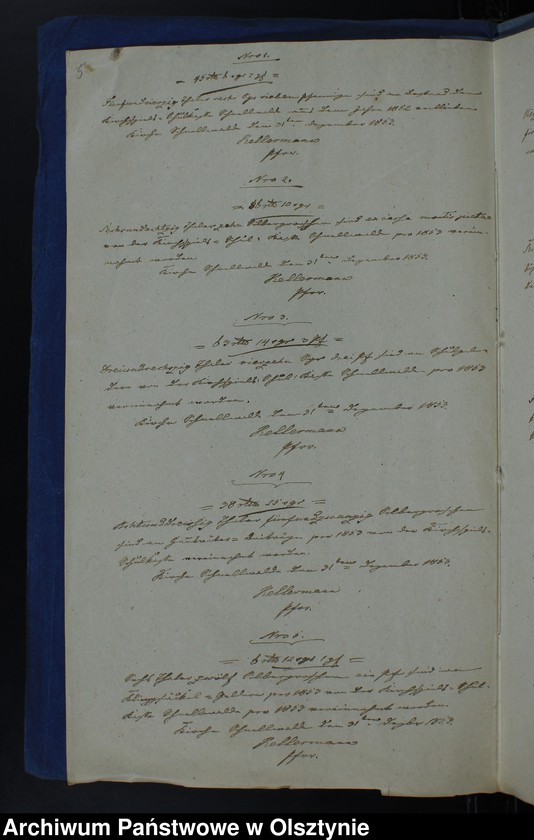 5
Nro 1.
= 45 rtl 6 sgr 7 pf =
Fünfundvierzig Thaler sechs Sgr sieben Pfennige sind an Bestand der
Kirchspiels-Schulkasse Schnellwalde aus dem Jahre 1852 verblieben
Kirche Schnellwalde den 31ten Dezember 1853.
Kellermann
Pfrr.
Nro 2.
= 86 rtl 10 sgr =
Sechsundachtzig Thaler zehn Silbergroschen sind ex cassa montis pietatis
von der Kirchspiels-Schul-Kasse Schnellwalde pro 1853 verein-
nahmt worden
Kirche Schnellwalde den 31ten Dezember 1853.
Kellermann
Pfrr.
Nro 3.
= 63 rtl 14 sgr 3 pf =
Dreiundsechszig Thaler vierzehn Sgr drei pf sind an Schulgel-
dern von der Kirchspiels-Schul-Kasse Schnellwalde pro 1853
vereinnahmt worden.
Kirche Schnellwalde den 31tens Dezember 1853.
Kellermann
Pfrr.
Nro 4
= 38 rtl 25 sgr =
Achtunddreissig Thaler fünfundzwanzig Silbergroschen
sind an Beiträge pro 1853 von der Kirchspiels-
Schulkasse vereinnahmt worden.
Kirche Schnellwalde den 31tens Dezember 1853.
Kellermann
Pfrr.
Nro 5.
= 6 rtl 12 sgr 1 pf =
Sechs Thaler zwölf Silbergroschen ein pf sind an
Klingsäckel-Geldern pro 1853 von der Kirchspiels-Schul-
Kasse Schnellwalde pro 1853 vereinnahmt worden.
Kirche Schnellwalde den 31tens Dezbr 1853.
Kellermann
Pfrr.
Archiwum Państwowe w Olsztynie